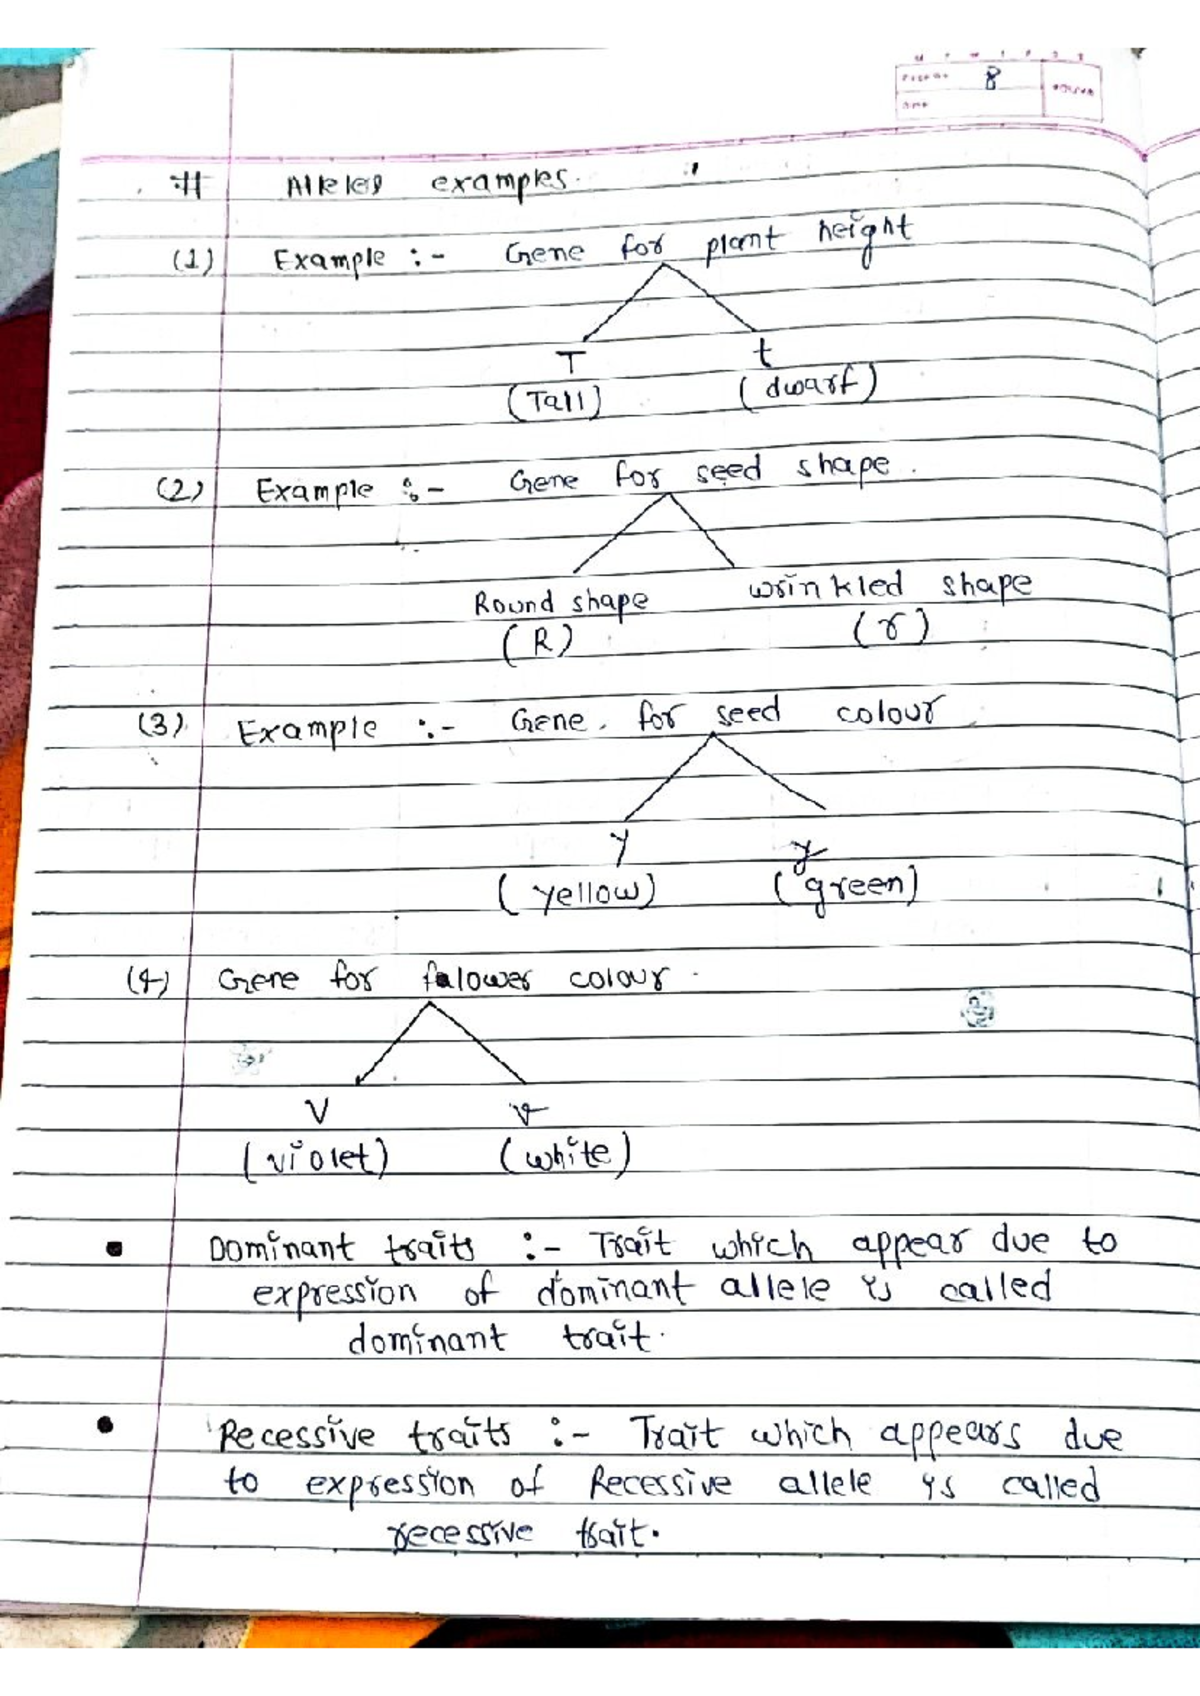 8
# Alleles examples.
(1) Example :- Gene for plant height
T t
(Tall) (dwarf)
(2) Example :- Gene for seed shape.
Round shape wrinkled shape
(R) (r)
(3) Example :- Gene for seed colour
Y y
(yellow) (green)
(4) Gene for falower colour.
V v
(violet) (white)
• Dominant traits :- Trait which appear due to
expression of dominant allele is called
dominant trait.
• Recessive traits :- Trait which appears due
to expression of Recessive allele is called
recessive trait.